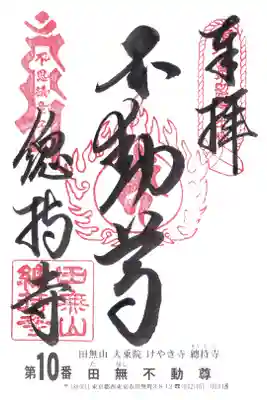 奉拝
不動尊
總持寺
田無山
總持寺
田無山 大乗院 けやき寺 總持寺
第10番 田無不動尊